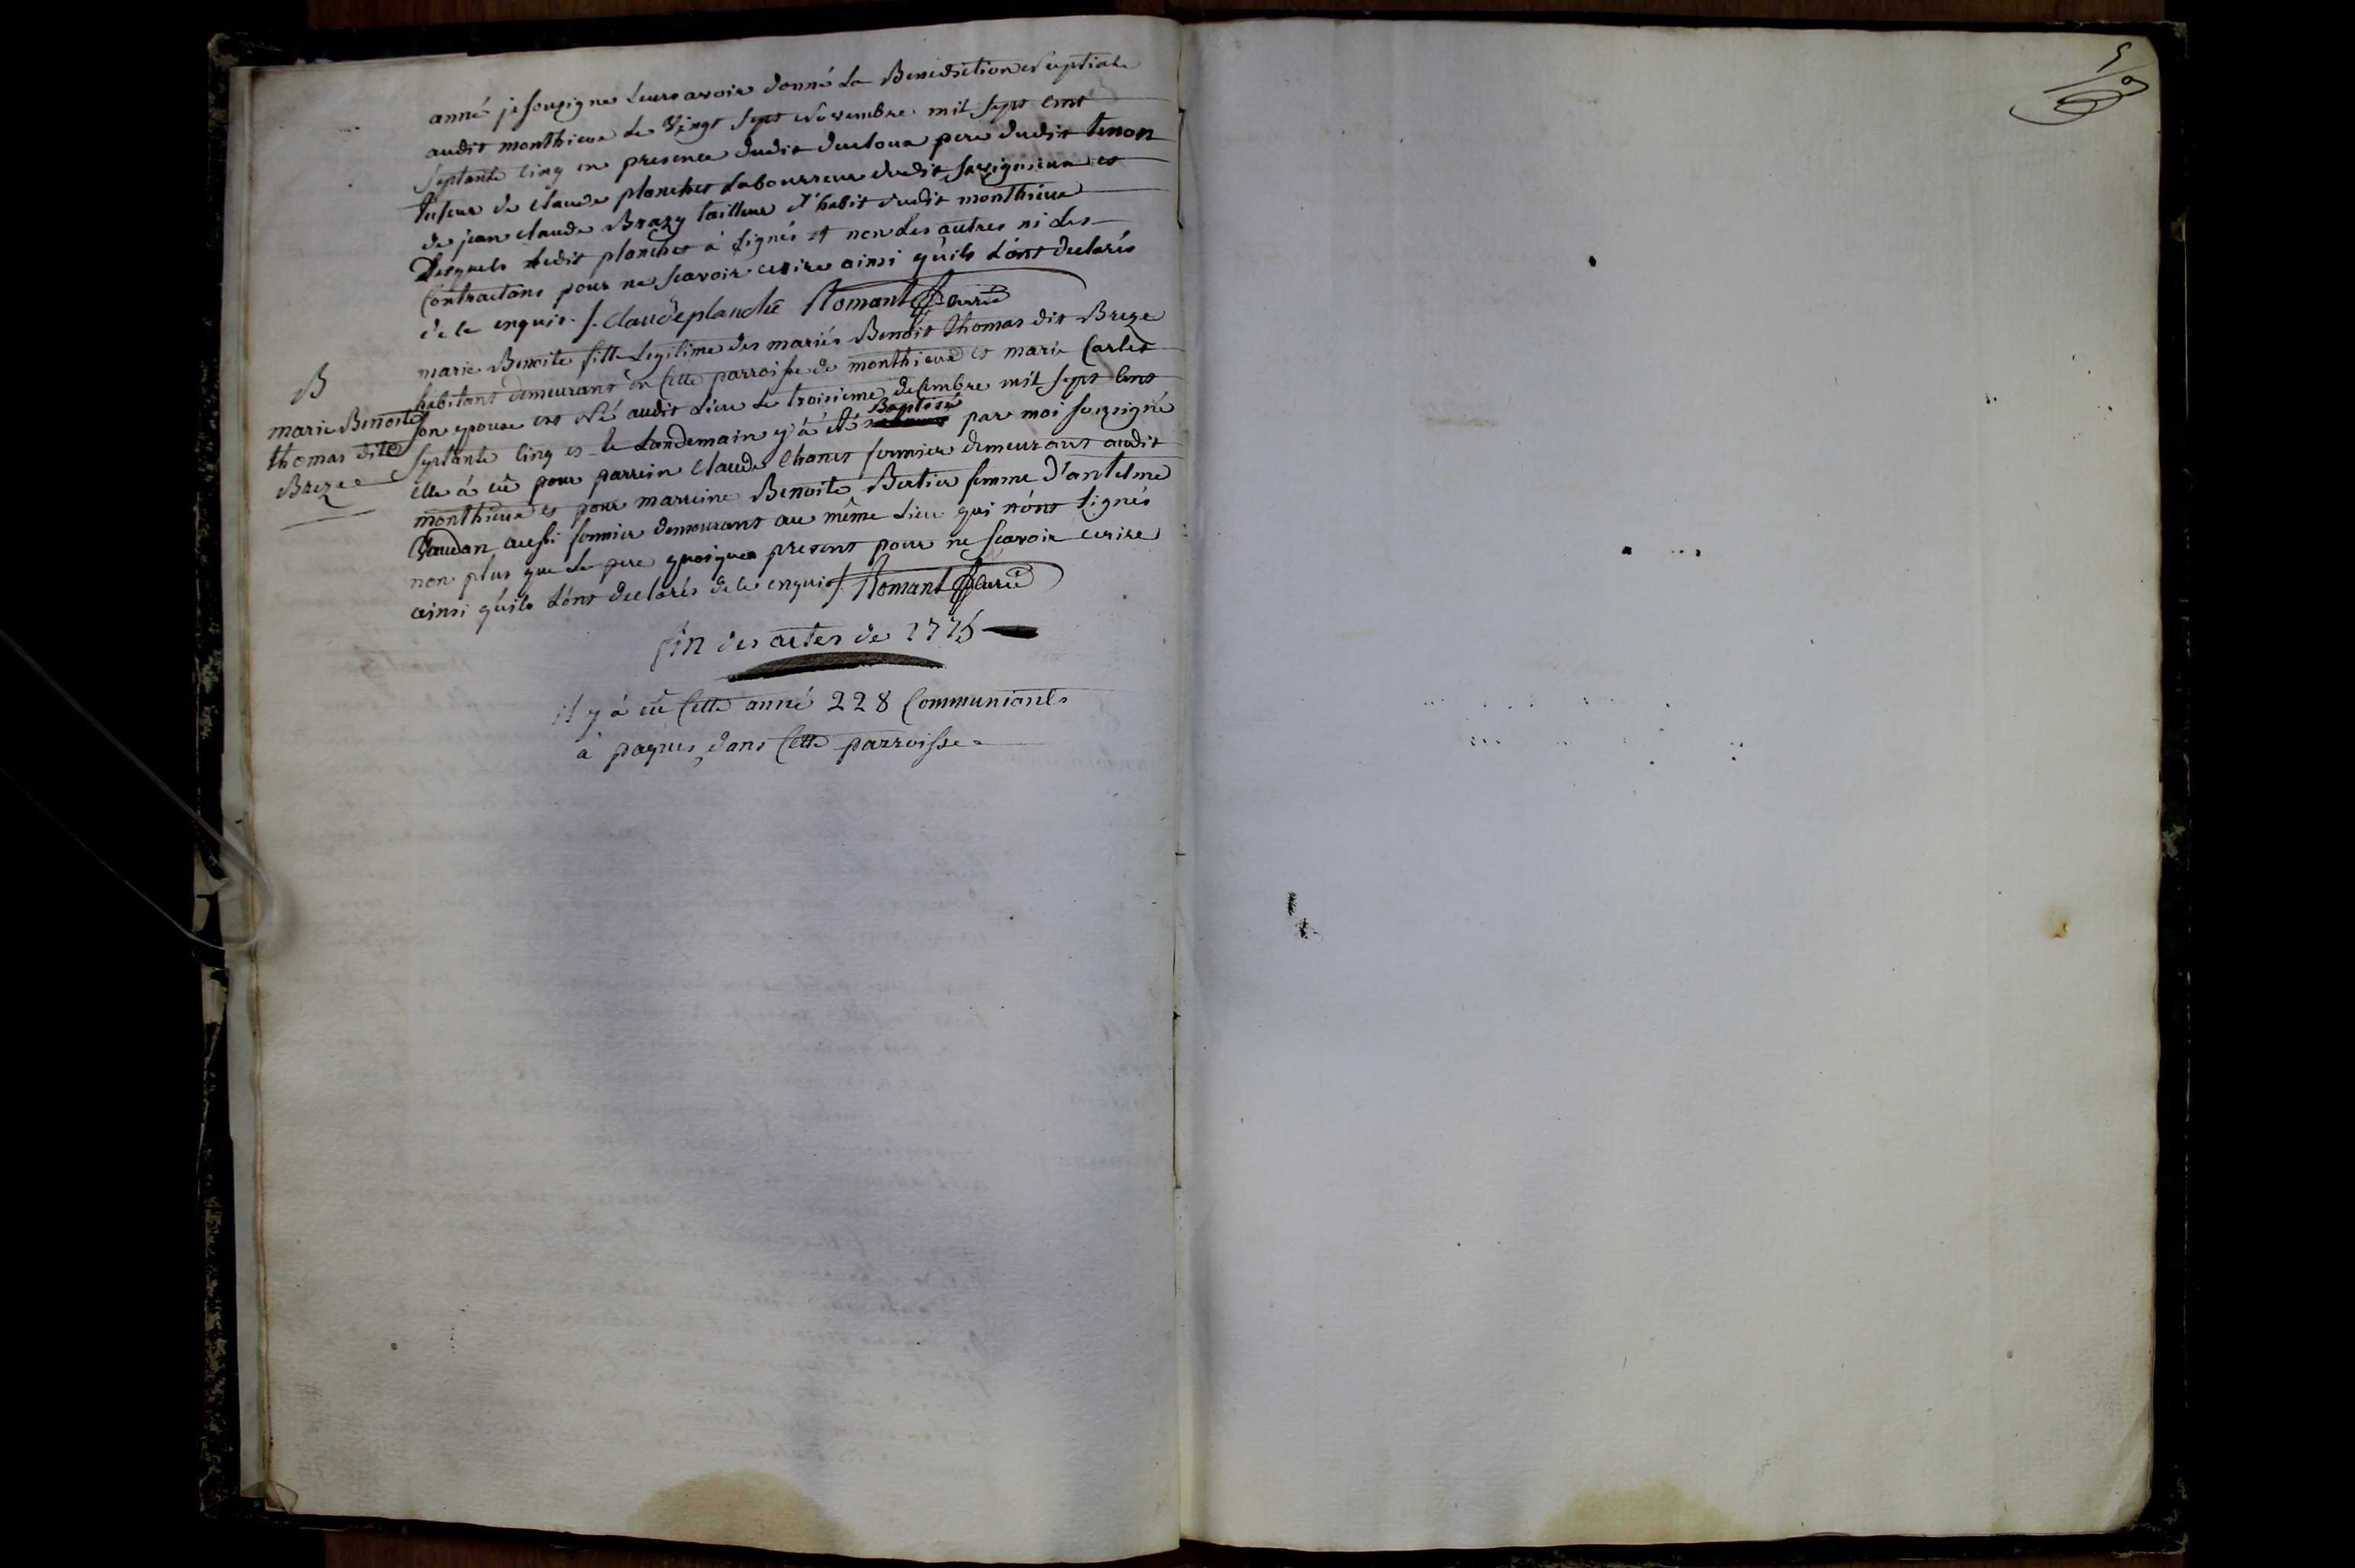 anné je sousigne leurs avoir donné la Benediction Nuptiale
audit monthieux le Vingt sept Novembre mil sept cent
septante cinq en presence dudit ducloux pere dudit
de claude planchet Labourreur dudit savigneux et
de jean claude Brazy tailleur d'habit dudit monthieux
Desquels ledit planchet à signés et non les autres ni les
Contractans pour ne scavoir ecrire ainsi qu'ils l'ont declarés
de ce enquis. J. Claude planche Romant Curé
B
marie Benoite
thomas dite
Breze
marie Benoite fille Legitime des mariés Benoit thomas dit Breze
habitant demeurant en cette parroisse de monthieux et marie Carlet
son epouse est Né audit lieu le troisieme decembre mil sept cent
septante cinq et le Landemain y à été Baptisé par moi sousigné
elle à eû pour parrein Claude Chanet fermier demeurant audit
monthieux et pour marreine Benoite Bertier femme d'antelme
Vaudan aussi fermier demeurant au même Lieu qui n'ont signés
non plus que le pere quoique present pour ne scavoir ecrire
ainsi qu'ils l'ont declarés de ce enquis. Romant Curé
fin des actes de 1775
il y à eû cette anné 228 Communiants
à paques, dans cette parroisse